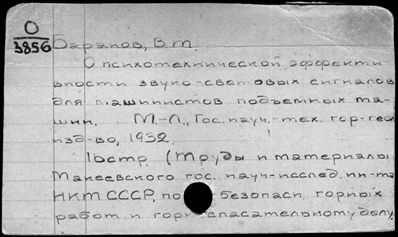 О
3856
Баранов, В.Т.
О психотехнической эффекти
вности звуко-световых сигналов
для машинистов подъемных ма-
шин. М.-Л., Гос. науч.-тех. гор-геол
изд-во, 1932.
16стр. (Труды и материалы
Макеевского гос. науч-исслед. ин-та
НКТ СССР, по безопасн. горных
работ и горн спасательному делу